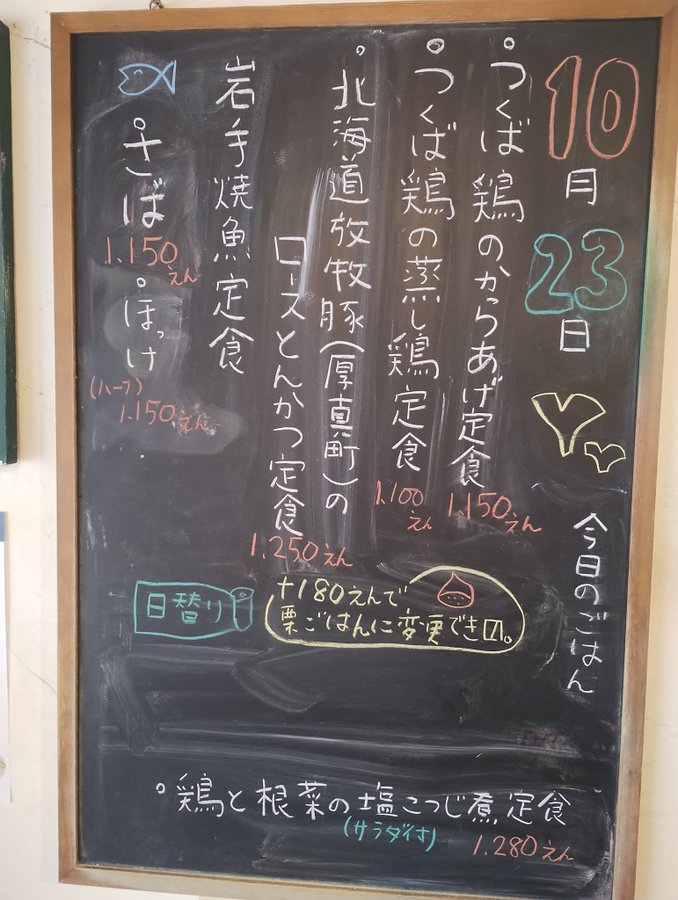 10月23日
今日のごはん
つくば鶏のからあげ定食
1.150えん
つくば鶏の蒸し鶏定食
1.100えん
北海道放牧豚(厚真町)の
ロースとんかつ定食
1.250えん
岩手焼魚定食
さば
1.150えん
ほっけ
(ハーフ)
1.150えん
+180えんで
栗ごはんに変更でき〼。
日替り
鶏と根菜の塩こうじ煮定食
(サラダ付)
1.280えん